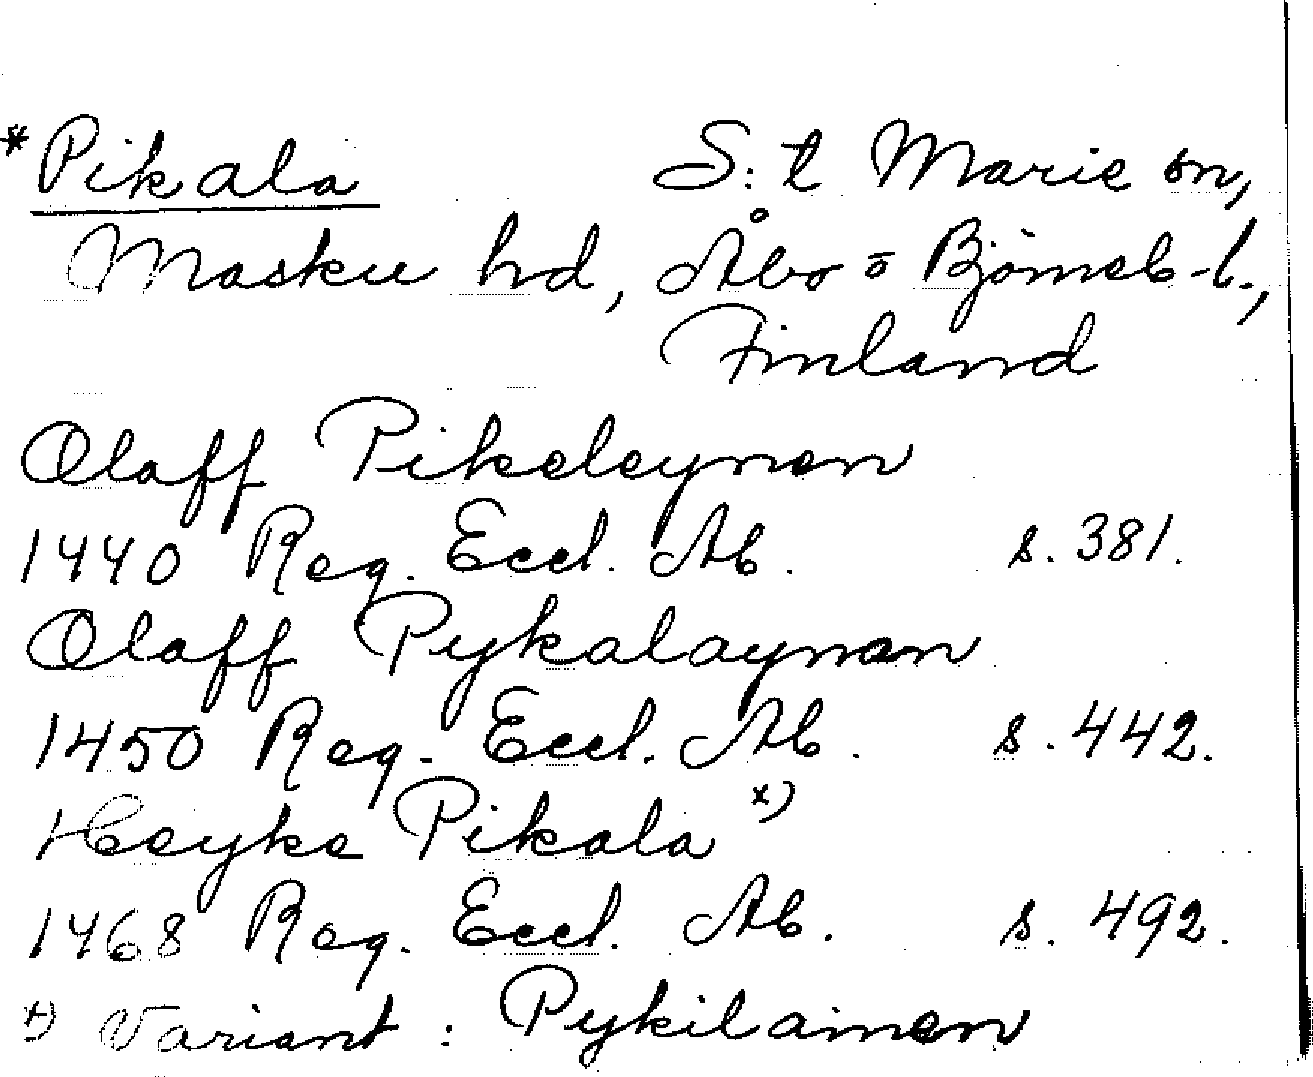 *Pikala S:t Marie sn,
Masku hd, Åbo o Björneb-l.,
Finland
Olaff Pikeleynen
1440 Reg. Eccl. Ab. s. 381.
Olaff Pykalaynen
1450 Reg. Eccl. Ab. s. 442.
Heyke Pikala x)
1468 Reg. Eccl. Ab. s. 492.
x) Variant: Pykilainen